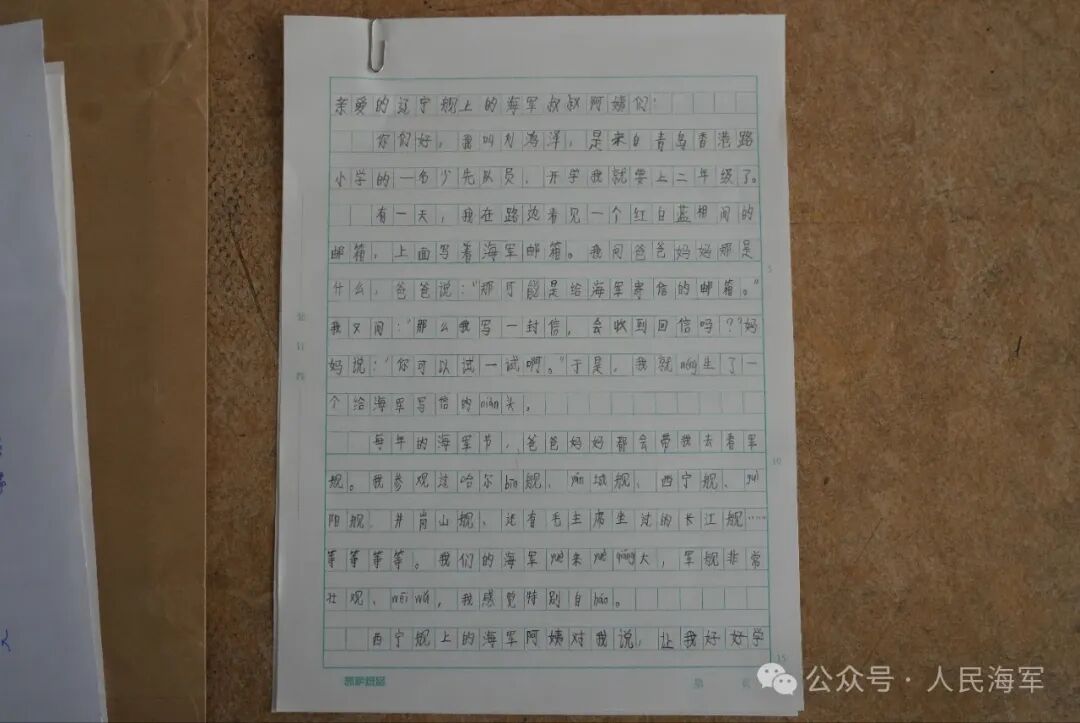 亲爱的辽宁舰上的海军叔叔阿姨们：
你们好，我叫刘鸿洋，是来自青岛香港路
小学的一名少先队员，开学我就要上二年级了。
有一天，我在路边看见一个红白蓝相间的
邮箱，上面写着海军邮箱。我问爸爸妈妈那是
什么，爸爸说："那可能是给海军寄信的邮箱。"
我又问："那么我写一封信，会收到回信吗？"妈
妈说："你可以试一试啊。"于是，我就méng生了一
个给海军写信的niàn头。
每年的海军节，爸爸妈妈都会带我去看军
舰。我参观过哈尔bīn舰、yān城舰、西宁舰、guì
阳舰、井岗山舰、还有毛主席坐过的长江舰……
等等等等。我们的海军yuè来yuè qiáng大，军舰非常
壮观、wēi wǔ，我感觉特别自háo。
西宁舰上的海军阿姨对我说，让我好好学
5
10
15
装
订
线
第 页
公众号·人民海军